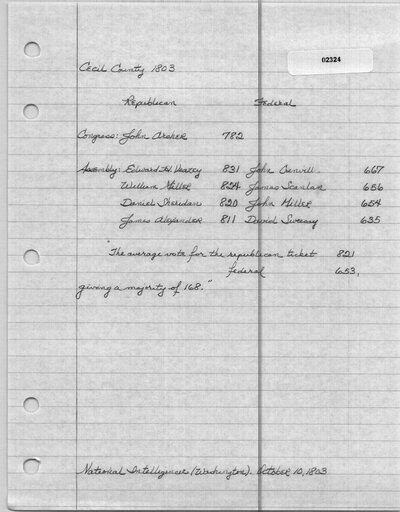 02324
Cecil County 1803
Republican Federal
Congress: John Archer 782
Assembly: Edward H. Veazey 831 John 667
William Miller 824 James Scanlan 656
Daniel Sheridan 820 John Miller 654
James Alexander 811 David 635
"The average vote for the republican ticket 821
federal 653,
giving a majority of 168."
National Intelligencer (Washington). October 10, 1803